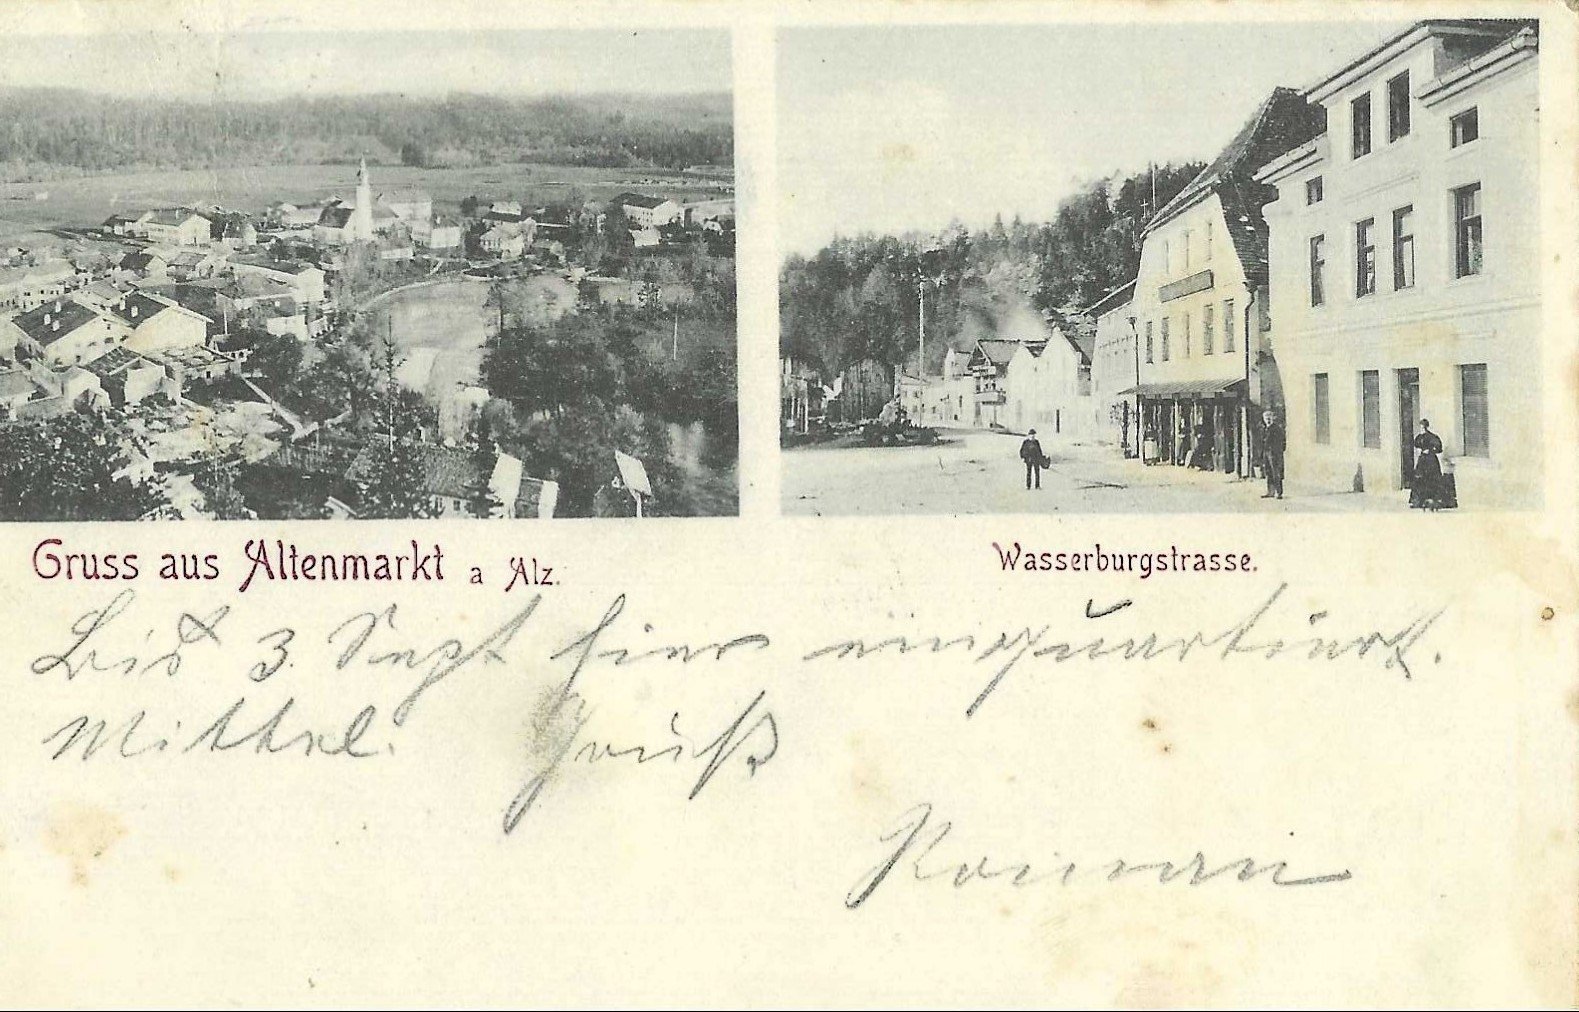 Gruss aus Altenmarkt a Alz.
Wasserburgstrasse.
Bis 3. Sept hier einquartiert.
Mittel. Gruß
Roman